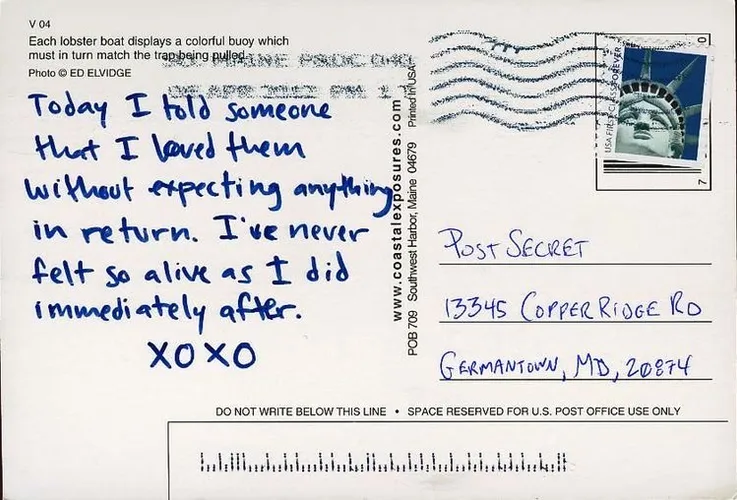 V 04
Each lobster boat displays a colorful buoy which
must in turn match the trap being pulled.
Photo © ED ELVIDGE
Today I told someone
that I loved them
without expecting anything
in return. I've never
felt so alive as I did
immediately after.
XOXO
www.coastalexposures.com
POB 709 Southwest Harbor, Maine 04679 Printed in USA
USA FIRST-CLASS FOREVER
Post Secret
13345 Copper Ridge Rd
Germantown, MD, 20874
DO NOT WRITE BELOW THIS LINE • SPACE RESERVED FOR U.S. POST OFFICE USE ONLY